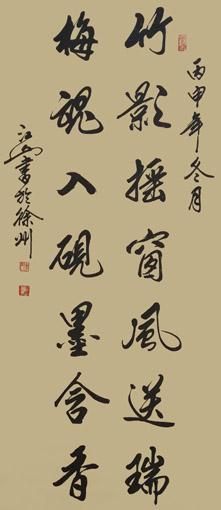 丙申年冬月
竹影摇窗風送瑞
梅魂入硯墨含香
江山書於徐州